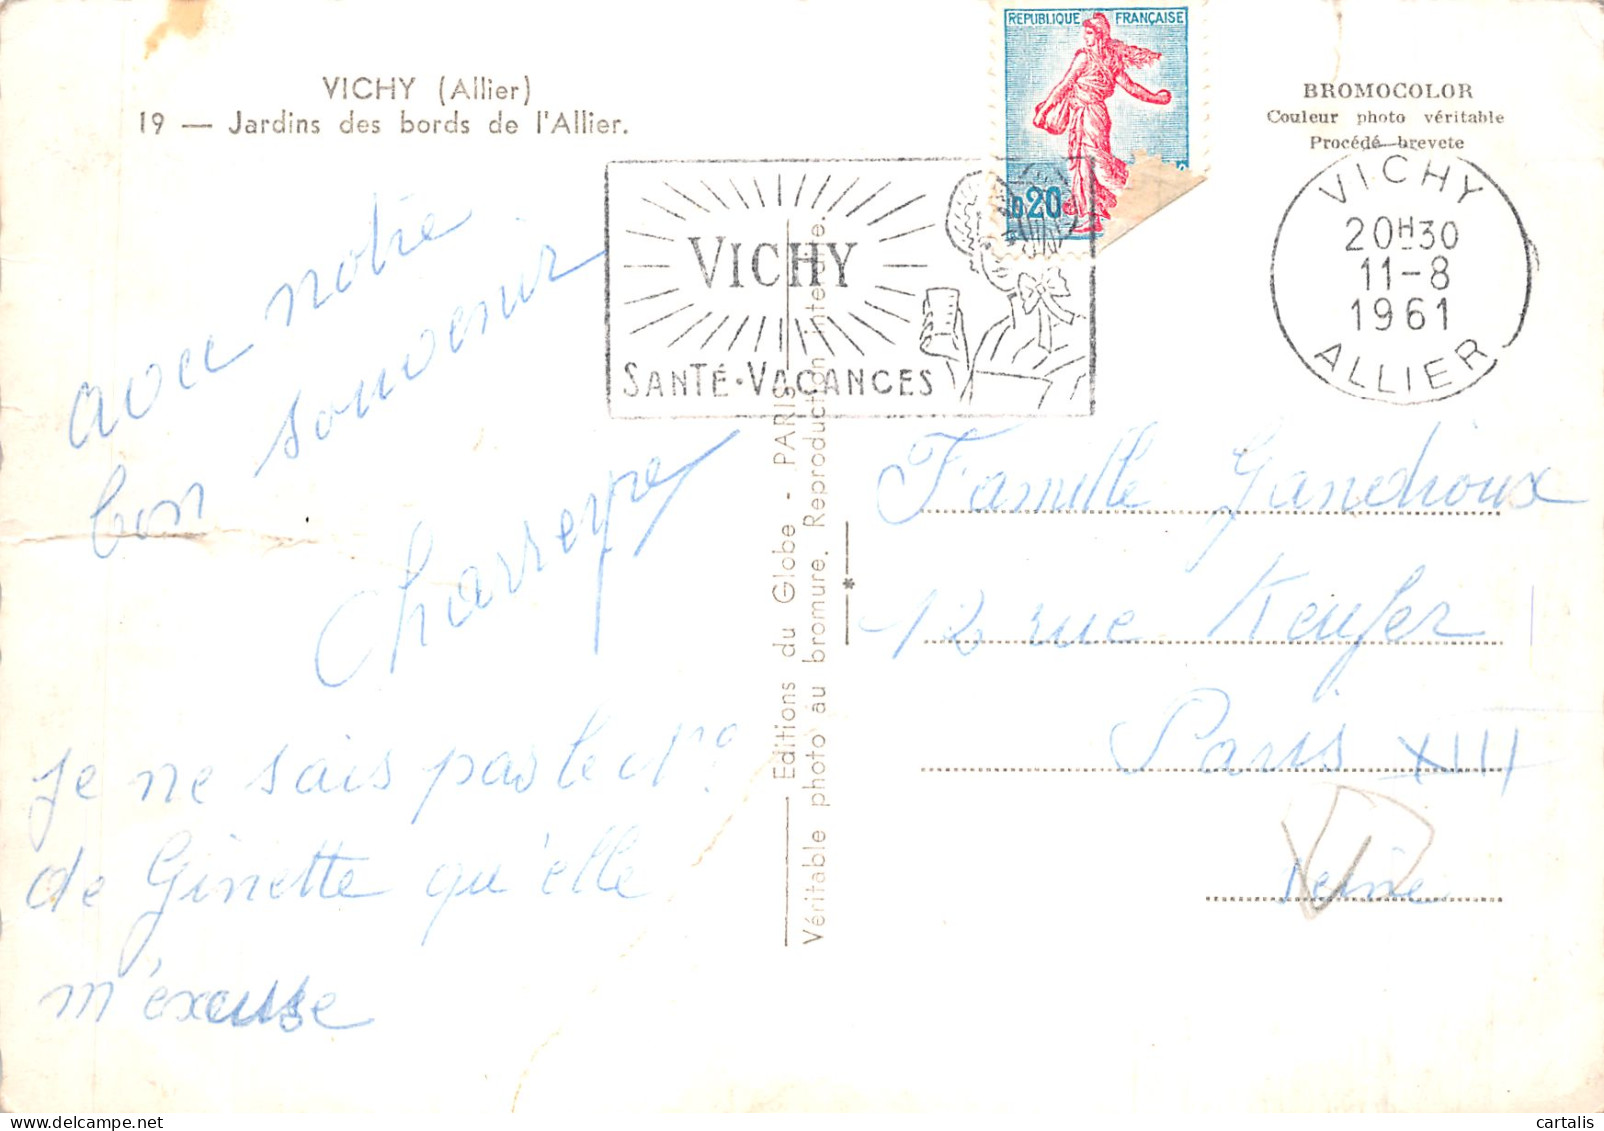 VICHY (Allier)
19 — Jardins des bords de l'Allier.
REPUBLIQUE FRANÇAISE
0,20
BROMOCOLOR
Couleur photo véritable
Procédé breveté
VICHY
SANTÉ·VACANCES
VICHY
20H30
11-8
1961
ALLIER
avec notre
bon souvenir
Charreyre
Je ne sais pas le No
de Ginette qu'elle
m'excuse
Editions du Globe - PARIS
Véritable photo au bromure. Reproduction interdite.
Famille Gandrioux
12 rue Keufer
Paris XIII
Seine
cartalis
www.delcampe.net